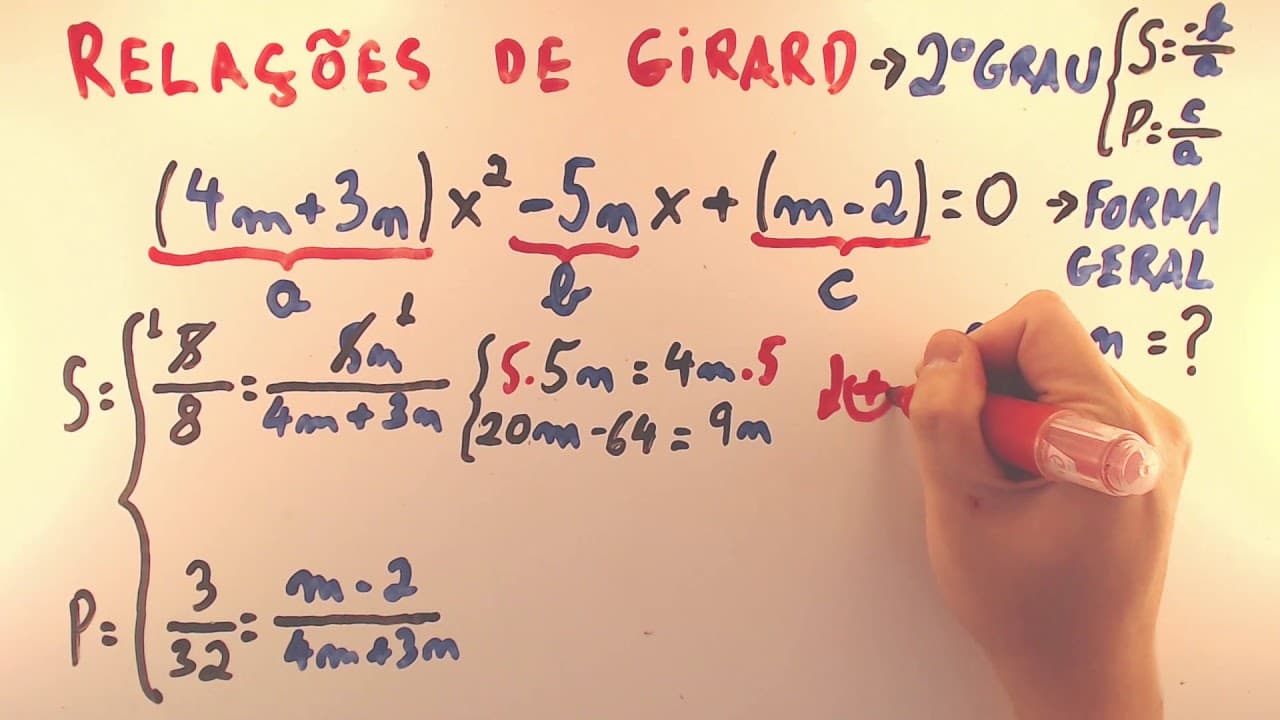 RELAÇÕES DE GIRARD → 2º GRAU { S = -b/a
P = c/a
(4m+3n)x² -5nx + (m-2) = 0 → FORMA GERAL
a b c
n = ?
S = { 5/8 = 5n/(4m+3n)
1 1
{ 5.5n = 4m.5
20m-64 = 9n
P = 3/32 = (m-2)/(4m+3n)